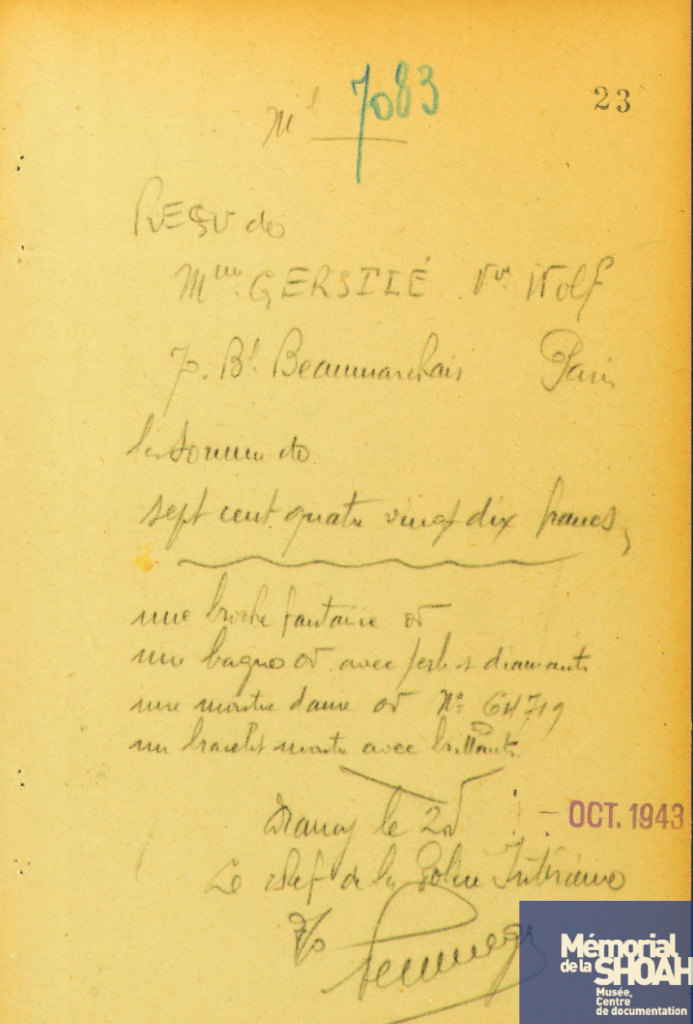 7083
23
REÇU de
Mme GERSTLÉ Vve Wolf
7. Bd Beaumarchais Paris
la somme de
sept cent quatre vingt dix francs,
une broche fantaisie or
une bague or avec perle et diamants
une montre dame or No 64719
un bracelet montre avec brillants
Drancy le 
- OCT. 1943
Le chef de la Police Intérieure
Mémorial
de la SHOAH
Musée,
Centre
de documentation